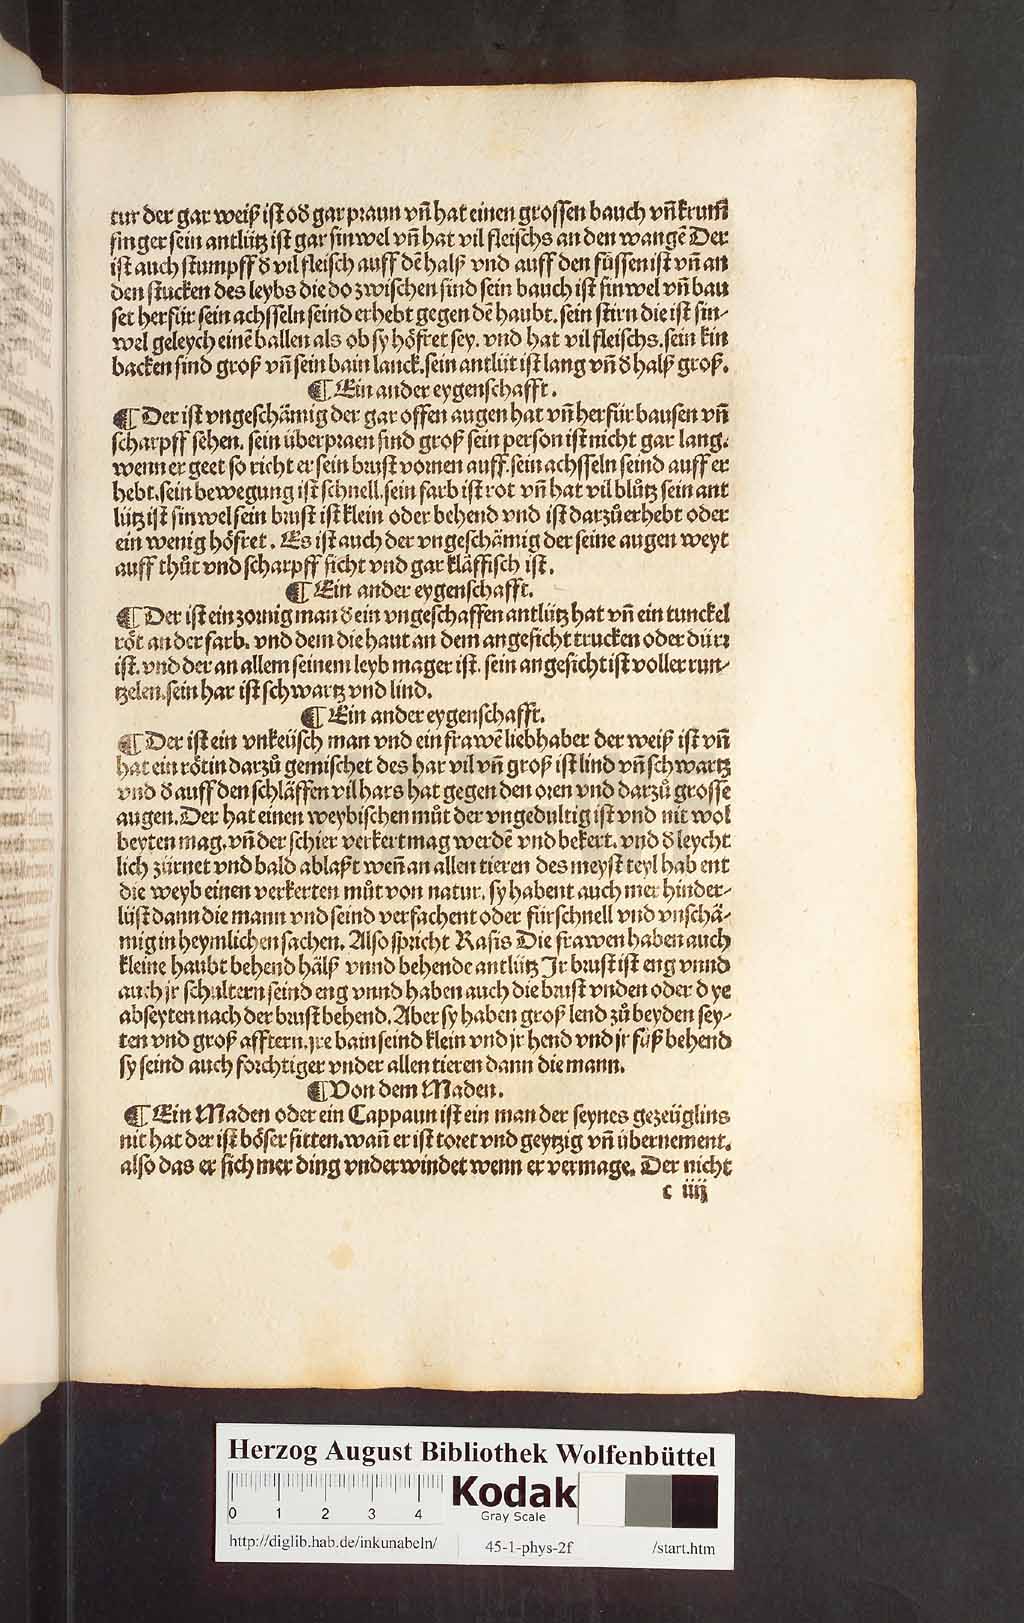 tur der gar weiß ist oď gar praun vn̄ hat einen grossen bauch vn̄ krum̄
finger sein antlütz ist gar sinwel vn̄ hat vil fleischs an den wangē Der
ist auch stumpff ď vil fleisch auff dē halß vnd auff den füssen ist vn̄ an
den stucken des leybs die do zwischen sind sein bauch ist sinwel vn̄ bau
set herfür sein achsseln seind erhebt gegen dē haubt. sein stirn die ist sin-
wel geleych einē ballen als ob sy höfret sey. vnd hat vil fleischs. sein kin
backen sind groß vn̄ sein bain lanck. sein antlüt ist lang vn̄ ď halß groß.
¶ Ein ander eygenschafft.
¶ Der ist vngeschämig der gar offen augen hat vn̄ herfür bausen vn̄
scharpff sehen. sein überpraen sind groß sein person ist nicht gar lang.
wenn er geet so richt er sein brust vornen auff. sein achsseln seind auff er
hebt. sein bewegung ist schnell. sein farb ist rot vn̄ hat vil blůtz sein ant
lütz ist sinwel sein brust ist klein oder behend vnd ist darzů erhebt oder
ein wenig höfret. Es ist auch der vngeschämig der seine augen weyt
auff thůt vnd scharpff sicht vnd gar kläffisch ist.
¶ Ein ander eygenschafft.
¶ Der ist ein zornig man ď ein vngeschaffen antlütz hat vn̄ ein tunckel
röt an der farb. vnd dem die haut an dem angesicht trucken oder dürr
ist. vnd der an allem seinem leyb mager ist. sein angesicht ist voller run-
tzelen. sein har ist schwartz vnd lind.
¶ Ein ander eygenschafft.
¶ Der ist ein vnkeüsch man vnd ein frawē liebhaber der weiß ist vn̄
hat ein rötin darzů gemischet des har vil vn̄ groß ist lind vn̄ schwartz
vnd ď auff den schläffen vil hars hat gegen den oren vnd darzů grosse
augen. Der hat einen weybischen můt der vngedultig ist vnd nit wol
beyten mag. vn̄ der schier verkert mag werdē vnd bekert. vnd ď leycht
lich zürnet vnd bald ablaßt wen̄ an allen tieren des meyst teyl hab ent
die weyb einen verkerten můt von natur. sy habent auch mer hinder-
lüst dann die mann vnd seind verfachent oder fürschnell vnd vnschä-
mig in heymlichen sachen. Also spricht Rasis Die frawen haben auch
kleine haubt behend hälß vnnd behende antlütz Jr brust ist eng vnnd
auch jr schultern seind eng vnnd haben auch die brust vnden oder dye
abseyten nach der brust behend. Aber sy haben groß lend zů beyden sey-
ten vnd groß afftern. jre bain seind klein vnd jr hend vnd jr füß behend
sy seind auch forchtiger vnder allen tieren dann die mann.
¶ Von dem Maden.
¶ Ein Maden oder ein Cappaun ist ein man der seynes gezeüglins
nit hat der ist böser sitten. wan̄ er ist toret vnd geytzig vn̄ übernement.
also das er sich mer ding vnderwindet wenn er vermage. Der nicht
c iiij
Herzog August Bibliothek Wolfenbüttel
0 1 2 3 4
Kodak
Gray Scale
http://diglib.hab.de/inkunabeln/ 45-1-phys-2f /start.htm